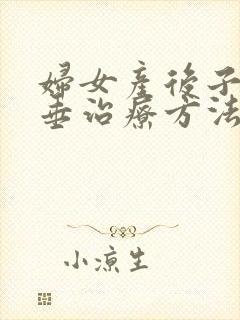 婦女產後子
垂治療方法
小涼生